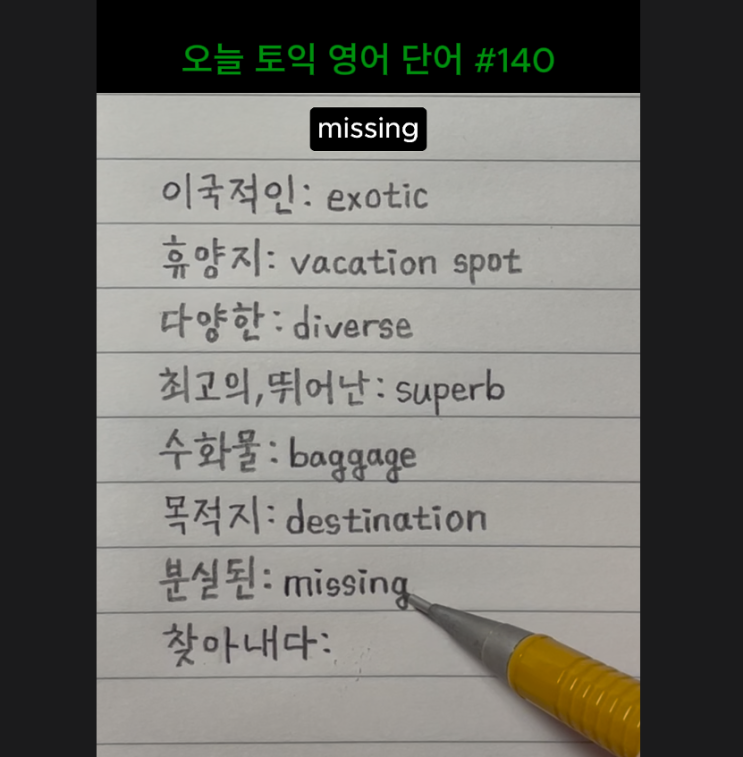 오늘 토익 영어 단어 #140
missing
이국적인: exotic
휴양지: vacation spot
다양한: diverse
최고의,뛰어난: superb
수화물: baggage
목적지: destination
분실된: missing
찾아내다: